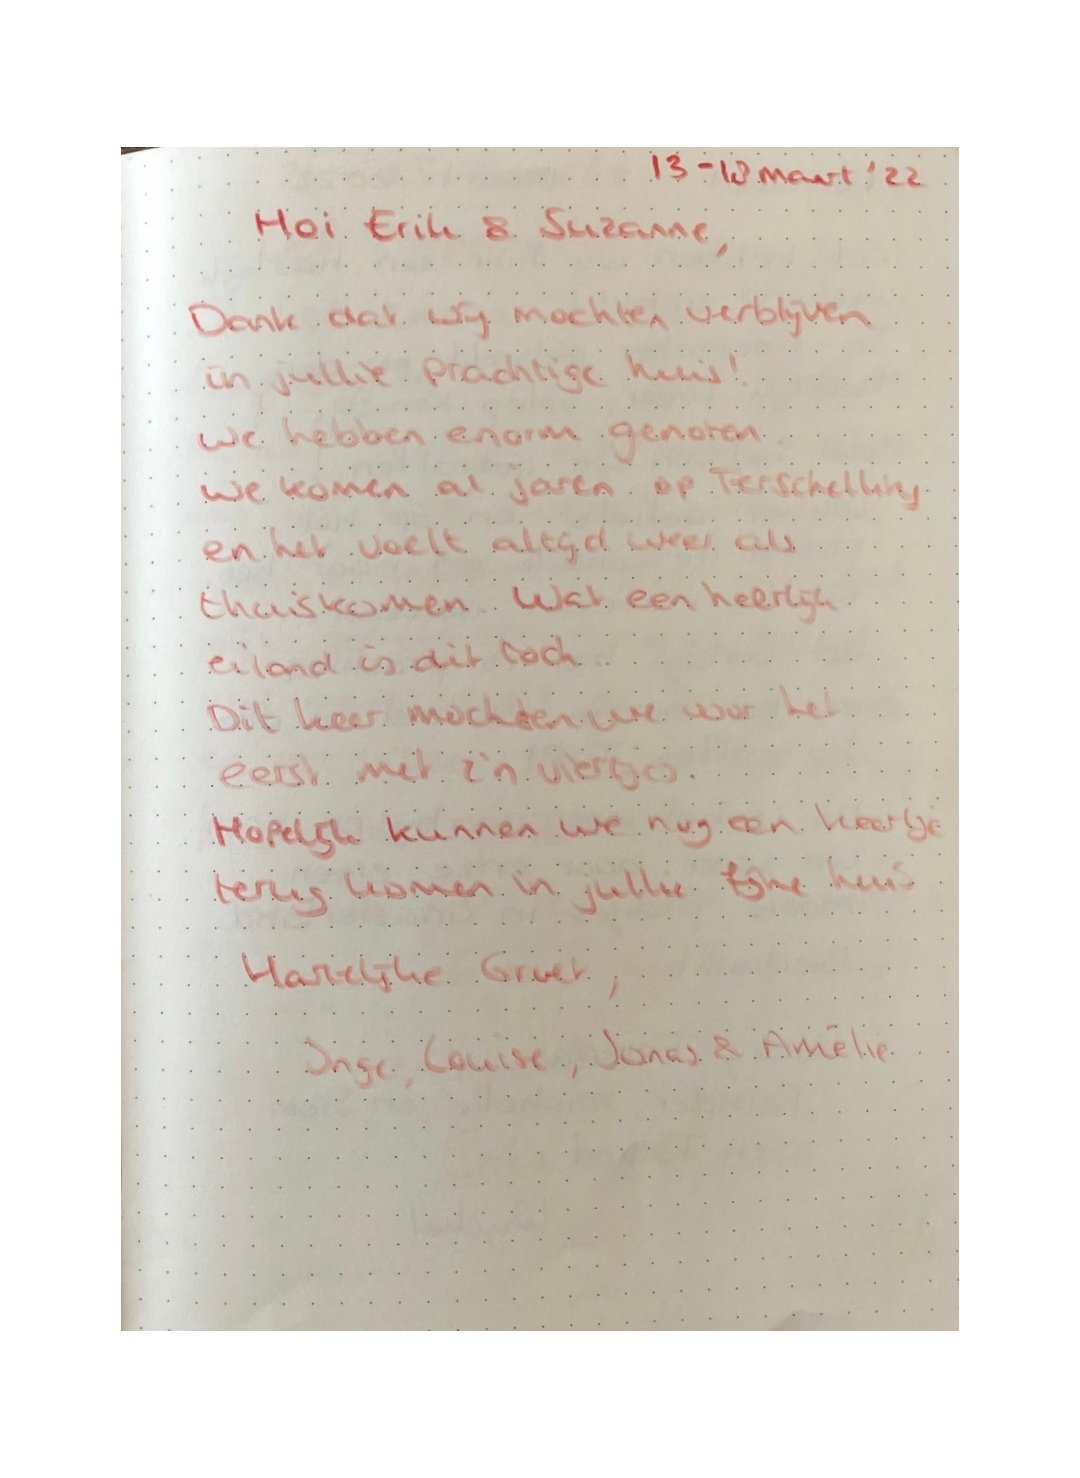 13-18 maart '22
Hoi Erik & Suzanne,
Dank dat wij mochten verblijven
in jullie prachtige huis!
We hebben enorm genoten.
We komen al jaren op Terschelling
en het voelt altijd weer als
thuiskomen. Wat een heerlijk
eiland is dit toch.
Dit keer mochten we voor het
eerst met z'n viertjes.
Hopelijk kunnen we nog een keertje
terug komen in jullie fijne huis
Hartelijke Groet,
Inge, Louise, Jonas & Amélie